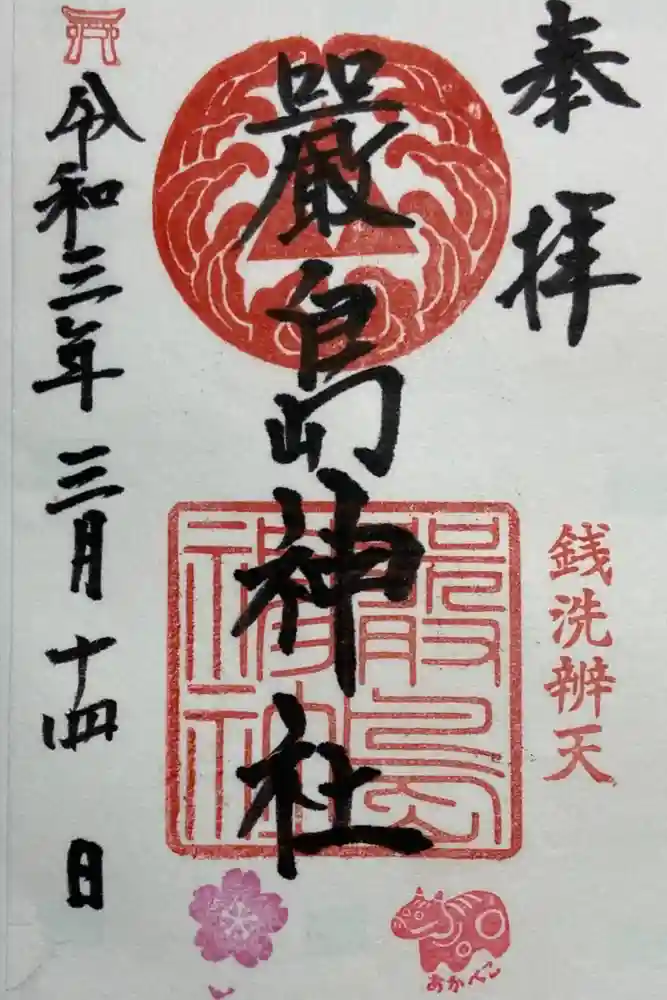 奉拝
銭洗辨天
嚴島神社
令和三年三月十四日
あかべこ